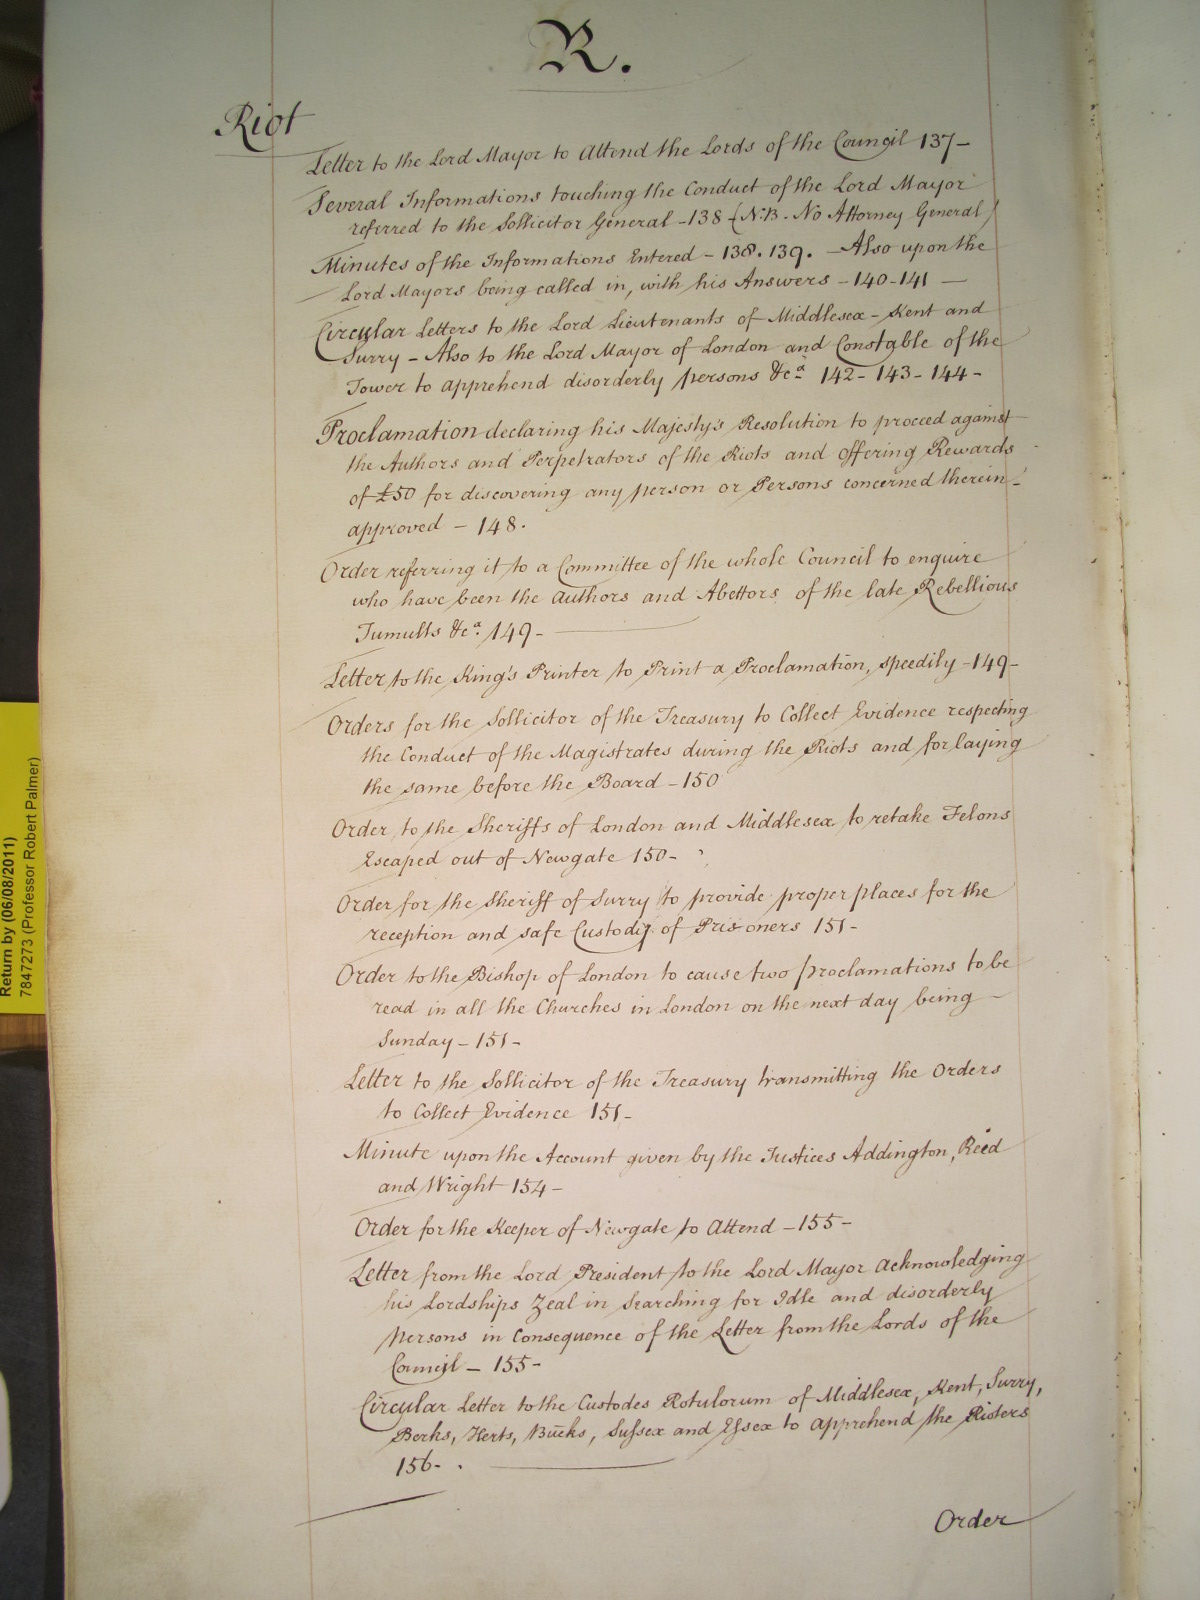 R.
Riot
Letter to the Lord Mayor to Attend the Lords of the Council 137-
Several Informations touching the Conduct of the Lord Mayor
referred to the Sollicitor General - 138 (N.B. No Attorney General)
Minutes of the Informations Entered - 138. 139. - Also upon the
Lord Mayors being called in, with his Answers - 140-141 -
Circular Letters to the Lord Lieutenants of Middlesex - Kent and
Surry - Also to the Lord Mayor of London and Constable of the
Tower to apprehend disorderly persons &ca 142- 143- 144-
Proclamation declaring his Majesty's Resolution to proceed against
the Authors and Perpetrators of the Riots and offering Rewards
of £50 for discovering any person or Persons concerned therein -
approved - 148.
Order referring it to a Committee of the whole Council to enquire
who have been the Authors and Abettors of the late Rebellious
Tumults &ca. 149-
Letter to the King's Printer to Print a Proclamation, speedily - 149-
Orders for the Sollicitor of the Treasury to Collect Evidence respecting
the Conduct of the Magistrates during the Riots and for laying
the same before the Board - 150
Order to the Sheriffs of London and Middlesex to retake Felons
Escaped out of Newgate 150-
Order for the Sheriff of Surry to provide proper places for the
reception and safe Custody of Prisoners 151-
Order to the Bishop of London to cause two proclamations to be
read in all the Churches in London on the next day being -
Sunday - 151-
Letter to the Sollicitor of the Treasury transmitting the Orders
to Collect Evidence 151-
Minute upon the Account given by the Justices Addington, Reed
and Wright 154-
Order for the Keeper of Newgate to Attend - 155-
Letter from the Lord President to the Lord Mayor Acknowledging
his Lordships Zeal in Searching for Idle and disorderly
Persons in Consequence of the Letter from the Lords of the
Council - 155-
Circular Letter to the Custodes Rotulorum of Middlesex, Kent, Surry,
Berks, Herts, Bucks, Sussex and Essex to apprehend the Rioters
156-.
Order
Return by (06/08/2011)
7847273 (Professor Robert Palmer)